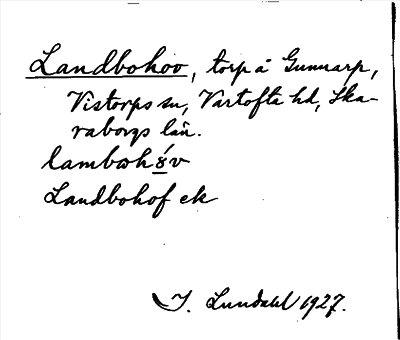 Landbohov, torp å Gunnarp,
Vistorps sn, Vartofta hd, Ska-
raborgs län.
lambωh󠀠ȣ́v
Landbohof ek
I. Lundahl 1927.